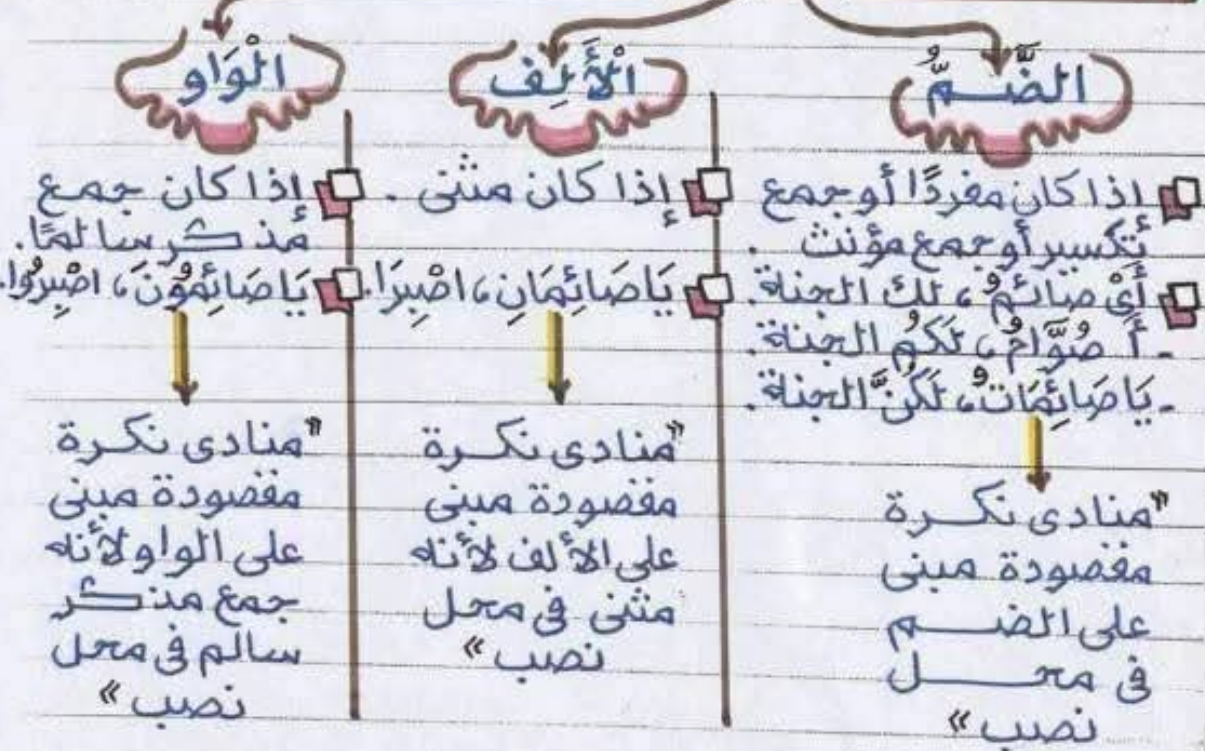 الضَّمُّ
إذا كان مفردًا أو جمع
تكسير أو جمع مؤنث .
أَيْ صائمُ، لك الجنة.
- أَ صُوَّامُ، لَكُمُ الجنة.
- يَا صَائِمَاتُ، لَكُنَّ الجنة.
"منادى نكرة
مقصودة مبنى
على الضم
فى محل
نصب"
الْأَلِف
إذا كان مثنى .
يَا صَائِمَانِ، اصْبِرَا.
"منادى نكرة
مقصودة مبنى
على الألف لأنه
مثنى فى محل
نصب"
الْوَاو
إذا كان جمع
مذكر سالمًا.
يَا صَائِمُونَ، اصْبِرُوا.
"منادى نكرة
مقصودة مبنى
على الواو لأنه
جمع مذكر
سالم فى محل
نصب"